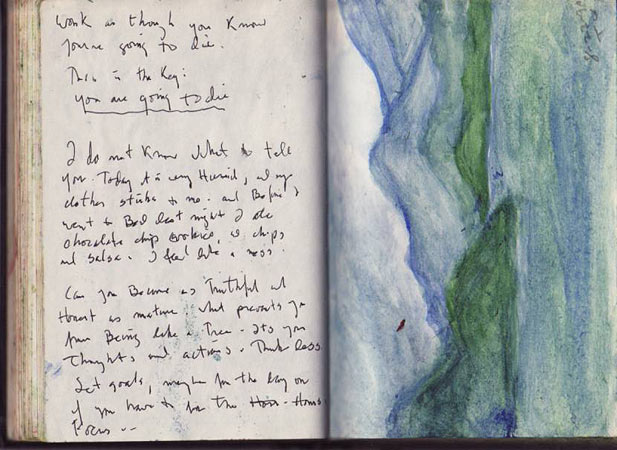 Work as though you know
you're going to die.
This is the key:
you are going to die
I do not know what to tell
you. Today it is very Humid, and my
clothes sticks to me. and Before I
went to Bed last night I ate
chocolate chip cookies, & chips
and salsa. I feel like a mess.
Can you Become as Truthful and
Honest as nature what prevents you
from Being like a Tree - its your
Thoughts and actions. Think less
Set goals, maybe for the day or
if you have to for the Hour.
Focus --